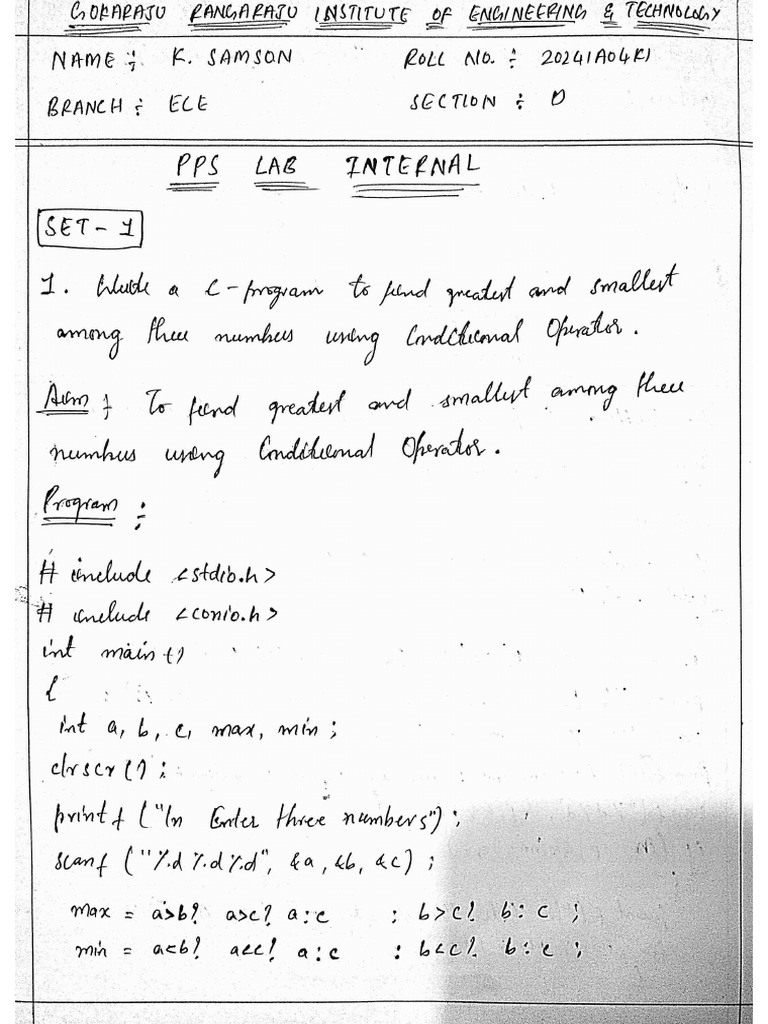 GOKARAJU RANGARAJU INSTITUTE OF ENGINEERING & TECHNOLOGY
NAME : K. SAMSON ROLL NO. : 20241A04K1
BRANCH : ECE SECTION : D
PPS LAB INTERNAL
SET - 1
1. Write a C-program to find greatest and smallest
among three numbers using Conditional Operator.
Aim : To find greatest and smallest among three
numbers using Conditional Operator.
Program :
# include <stdio.h>
# include <conio.h>
int main ()
{
int a, b, c, max, min ;
clrscr () ;
printf ("\n Enter three numbers") ;
scanf ("%d %d %d", &a, &b, &c) ;
max = a>b? a>c? a : c : b>c? b : c ;
min = a<b? a<c? a : c : b<c? b : c ;